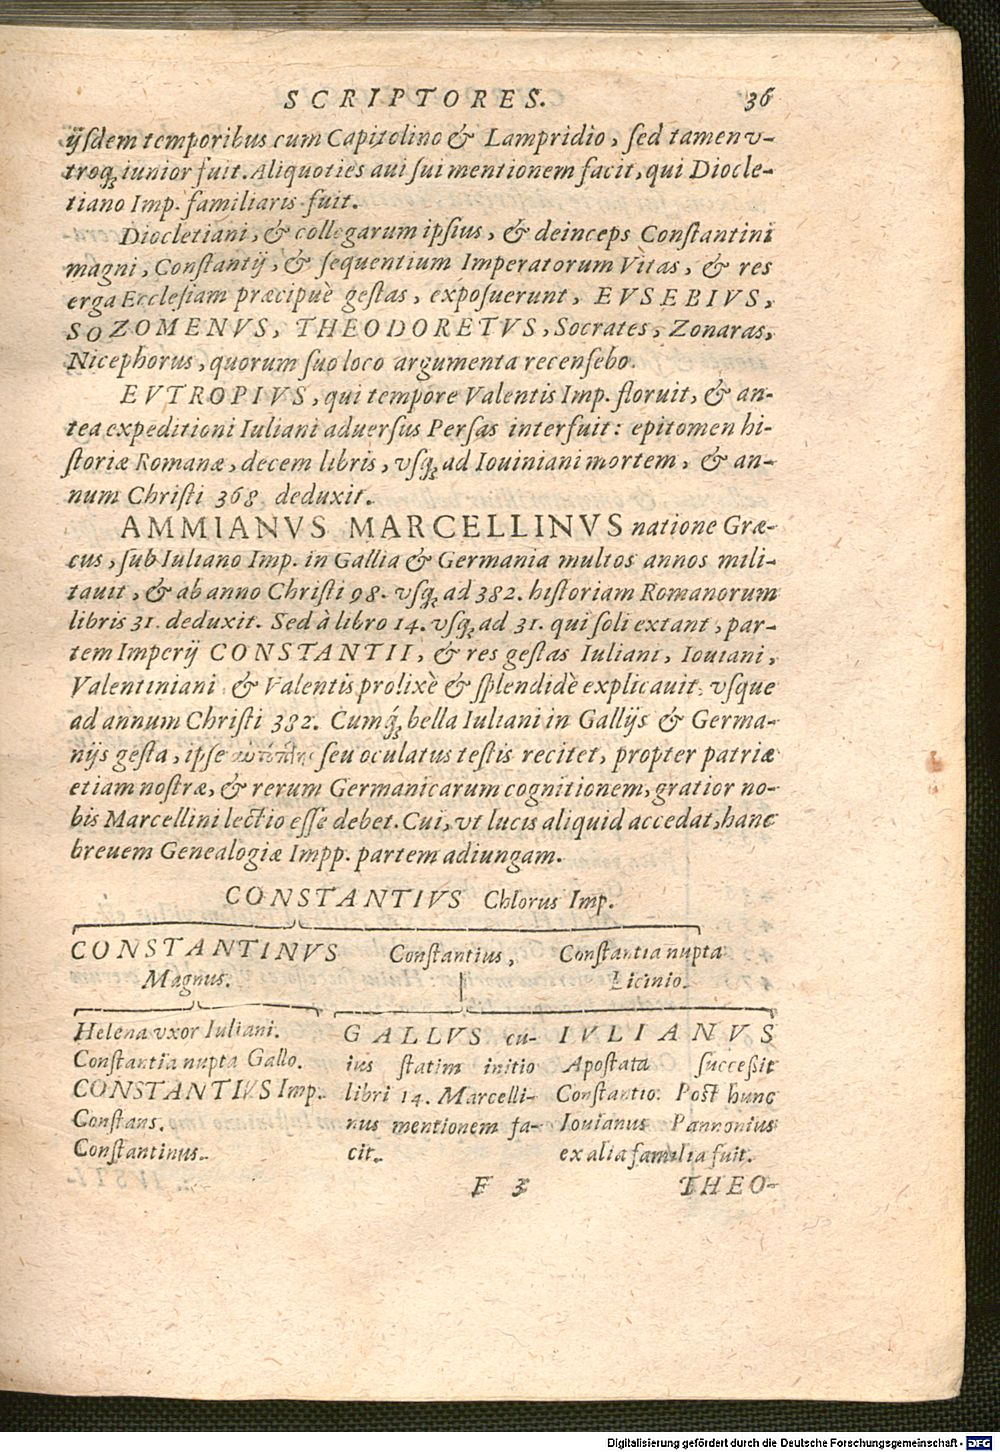 SCRIPTORES. 36
ijſdem temporibus cum Capitolino & Lampridio, ſed tamen v-
troq; iunior fuit. Aliquoties aui ſui mentionem facit, qui Diocle-
tiano Imp. familiaris fuit.
Diocletiani, & collegarum ipſius, & deinceps Conſtantini
magni, Conſtantij, & ſequentium Imperatorum Vitas, & res
erga Eccleſiam præcipuè geſtas, expoſuerunt, EVSEBIVS,
SOZOMENVS, THEODORETVS, Socrates, Zonaras,
Nicephorus, quorum ſuo loco argumenta recenſebo.
EVTROPIVS, qui tempore Valentis Imp. floruit, & an-
tea expeditioni Iuliani aduerſus Perſas interfuit: epitomen hi-
ſtoriæ Romanæ, decem libris, vſq; ad Iouiniani mortem, & an-
num Chriſti 368 deduxit.
AMMIANVS MARCELLINVS natione Græ-
cus, ſub Iuliano Imp. in Gallia & Germania multos annos mili-
tauit, & ab anno Chriſti 98. vſq; ad 382. hiſtoriam Romanorum
libris 31. deduxit. Sed à libro 14. vſq; ad 31. qui ſoli extant, par-
tem Imperij CONSTANTII, & res geſtas Iuliani, Iouiani,
Valentiniani & Valentis prolixè & ſplendidè explicauit, vſque
ad annum Chriſti 382. Cumq́; bella Iuliani in Gallijs & Germa-
nijs geſta, ipſe αὐτόπτης ſeu oculatus teſtis recitet, propter patriæ
etiam noſtræ, & rerum Germanicarum cognitionem, gratior no-
bis Marcellini lectio eſſe debet. Cui, vt lucis aliquid accedat, hanc
breuem Genealogiæ Impp. partem adiungam.
CONSTANTIVS Chlorus Imp.
CONSTANTINVS
Magnus.
Conſtantius,
Conſtantia nupta
Licinio.
Helena vxor Iuliani.
Conſtantia nupta Gallo.
CONSTANTIVS Imp.
Conſtans.
Conſtantinus.
GALLVS cu-
ius ſtatim initio
libri 14. Marcelli-
nus mentionem fa-
cit.
IVLIANVS
Apoſtata ſucceſsit
Conſtantio. Poſt hunc
Iouianus Pannonius
ex alia familia fuit.
F 3 THEO-
Digitalisierung gefördert durch die Deutsche Forschungsgemeinschaft - DFG